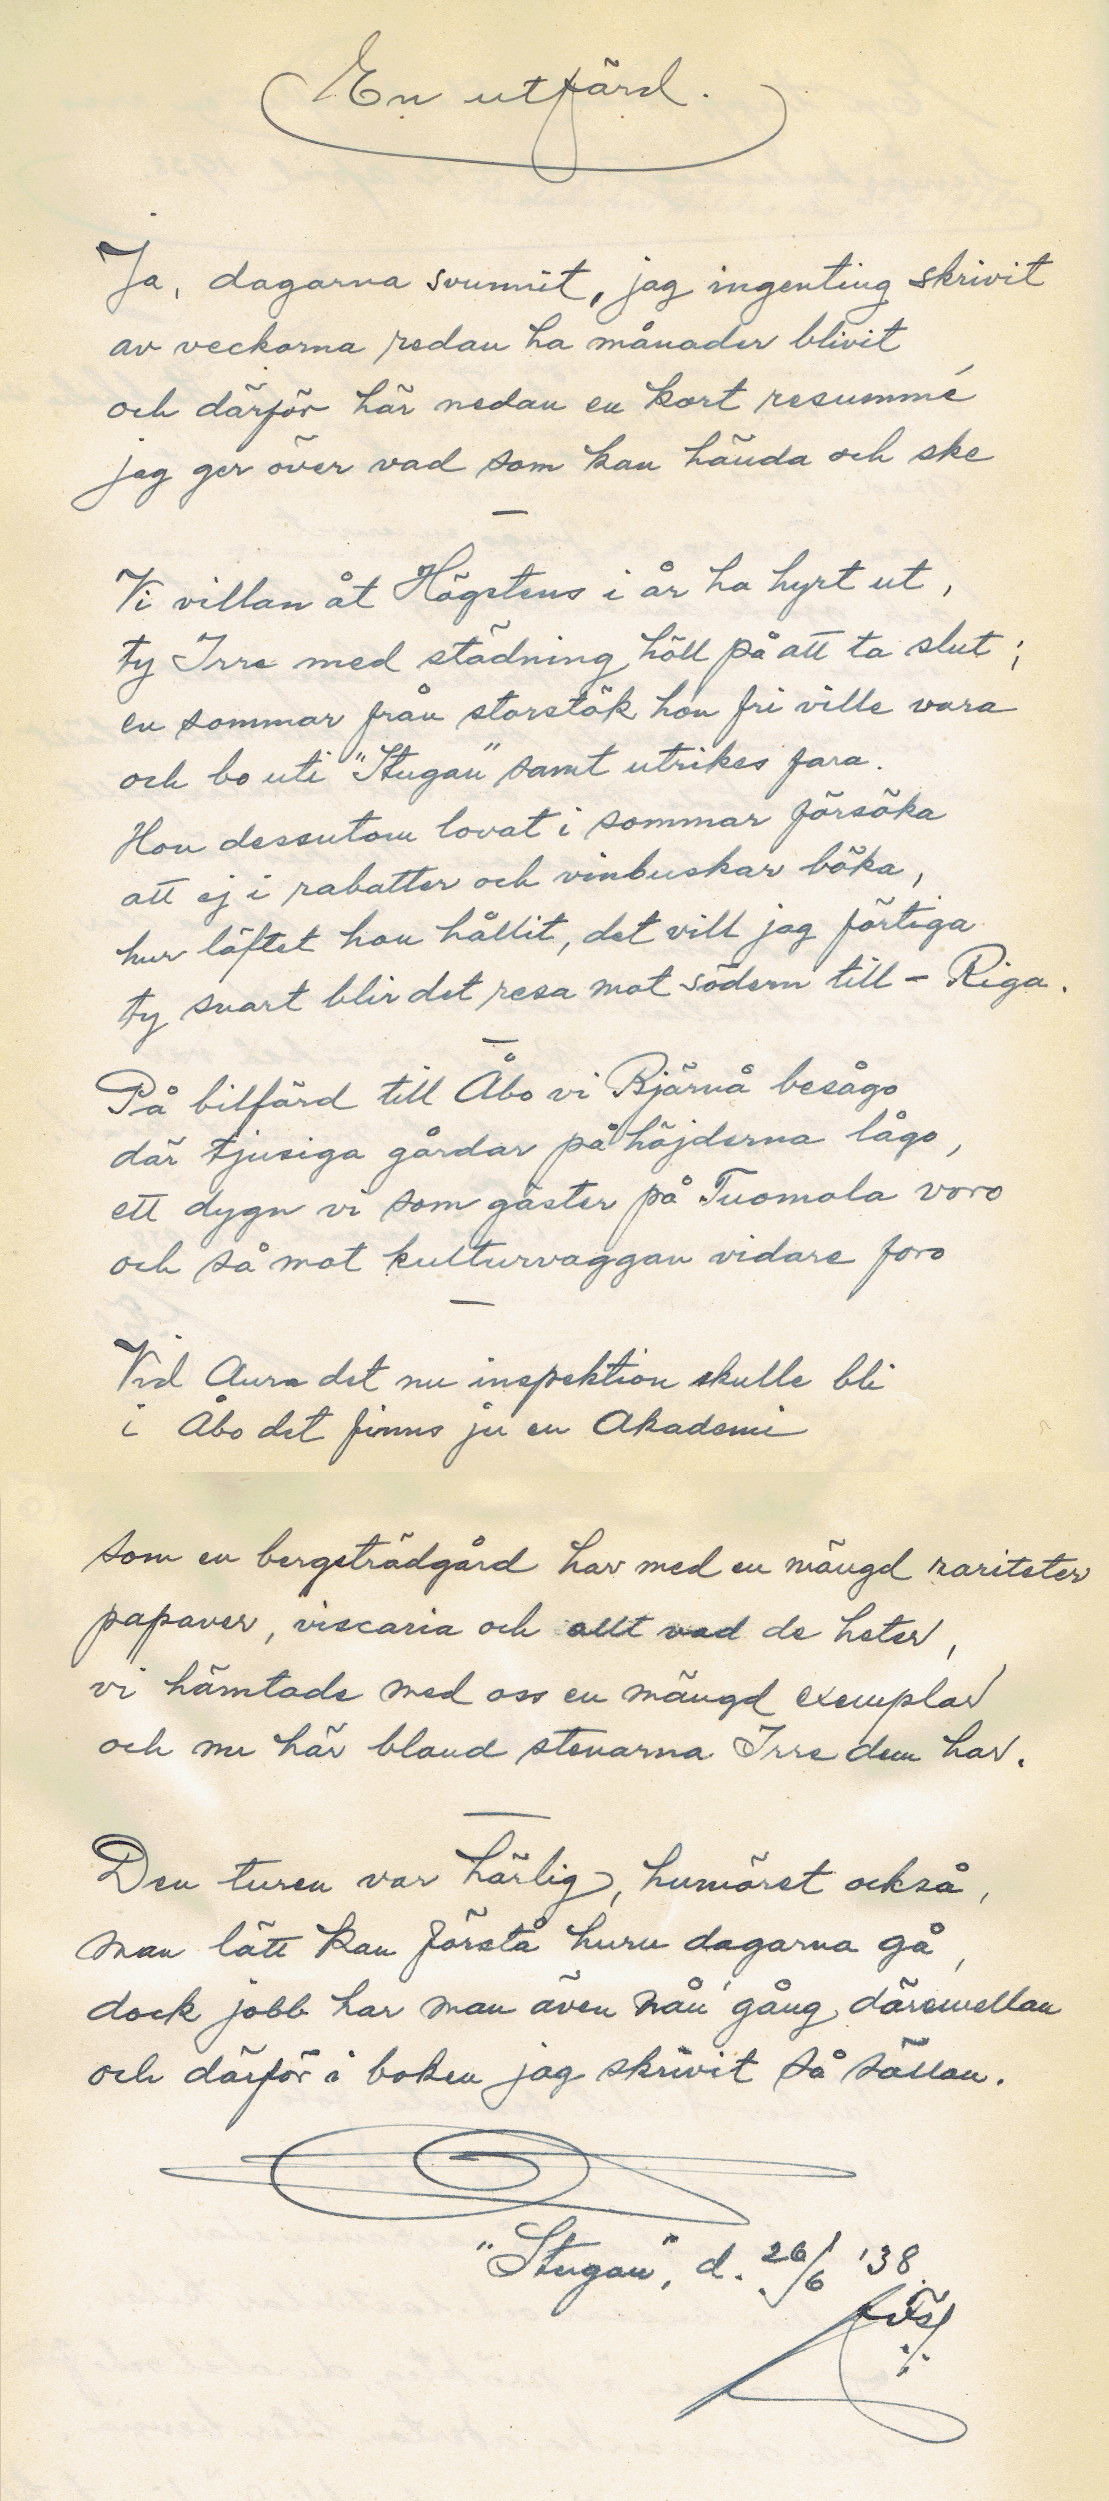 En utfärd.
Ja, dagarna svunnit, jag ingenting skrivit
av veckorna redan ha månader blivit
och därför här nedan en kort resummé
jag ger över vad som kan hända och ske
—
Vi villan åt Högstens i år ha hyrt ut,
ty Irre med städning höll på att ta slut;
en sommar från storstök hon fri ville vara
och bo uti "Stugan" samt utrikes fara.
Hon dessutom lovat i sommar försöka
att ej i rabatter och vinbuskar böka,
hur löftet hon hållit, det vill jag förtiga
ty snart blir det resa mot södern till – Riga.
—
På bilfärd till Åbo vi Bjärnå besågo
där tjusiga gårdar på höjderna lågo,
ett dygn vi som gäster på Tuomola voro
och så mot kulturvaggan vidare foro
—
Vid Aura det nu inspektion skulle bli
i Åbo det finns ju en Akademi
som en bergsträdgård har med en mängd rariteter
papaver, viscaria och allt vad de heter,
vi hämtade med oss en mängd exemplar
och nu här bland stenarna Irre dem har.
—
Den turen var härlig, humöret också,
man lätt kan förstå huru dagarna gå,
dock jobb har man även nån' gång däremellan
och därför i boken jag skrivit så sällan.
"Stugan", d. 26/6 '38.